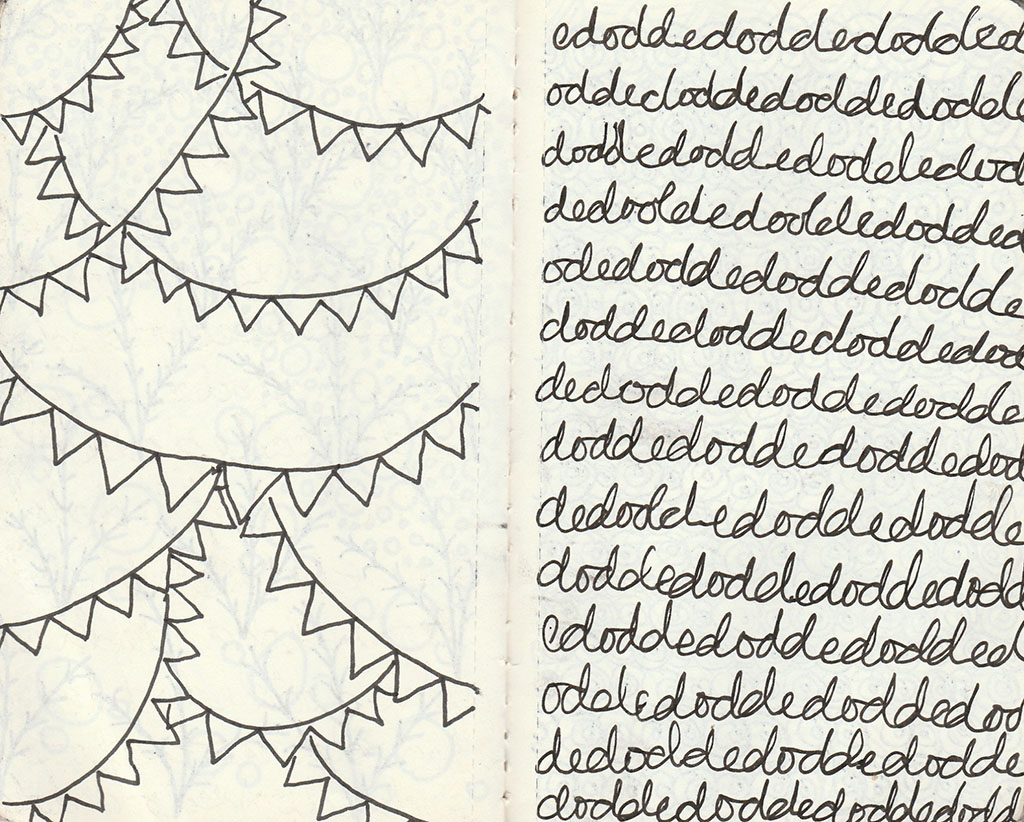 edoddedoddedodded
oddedoddedoddedodde
doddedoddedoddedod
dedoddedoddedodded
odedoddedoddedodde
doddedoddedoddedod
dedoddedoddedodde
doddedoddedoddedod
dedoddedoddedodde
doddedoddedoddedodd
edoddedoddedodded
oddedoddedoddedod
dedoddedoddedodde
doddedoddedoddedodd